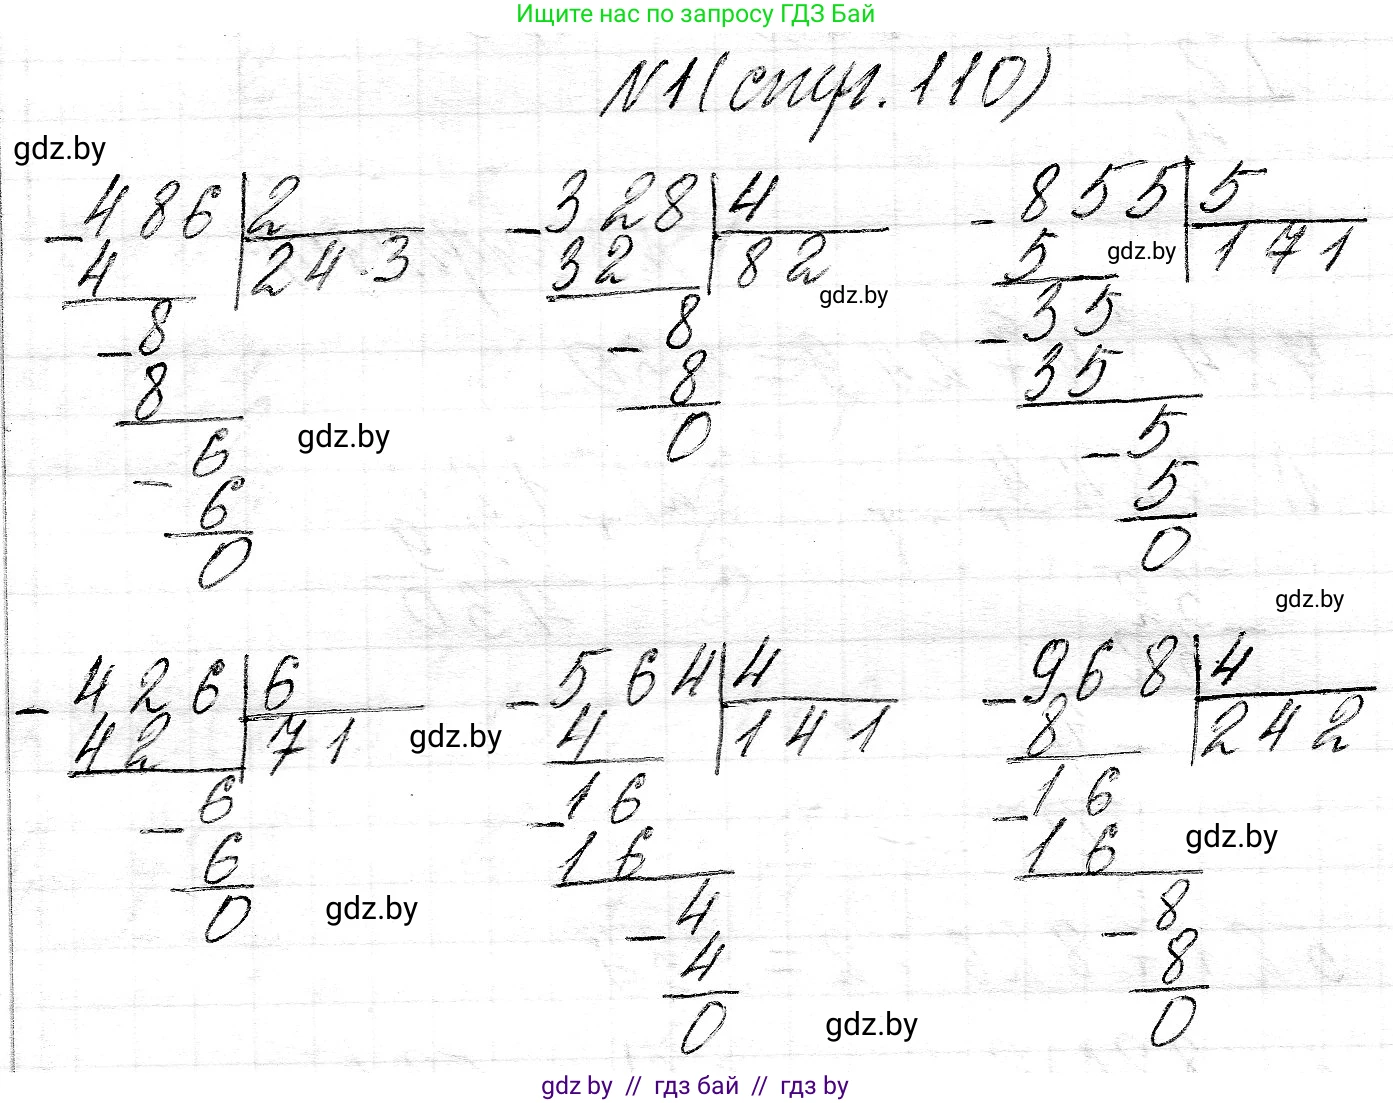 Ищите нас по запросу ГДЗ Бай
N1 (стр. 110)
gdz.by
- 486 | 2
4 | 243
- 8
8
- 6
6
0
gdz.by
- 328 | 4
32 | 82
- 8
8
0
gdz.by
- 855 | 5
5 | 171
- 35
35
- 5
5
0
gdz.by
gdz.by
- 426 | 6
42 | 71
- 6
6
0
gdz.by
gdz.by
- 564 | 4
4 | 141
- 16
16
- 4
4
0
gdz.by
- 968 | 4
8 | 242
- 16
16
- 8
8
0
gdz.by
gdz by // гдз бай // гдз by